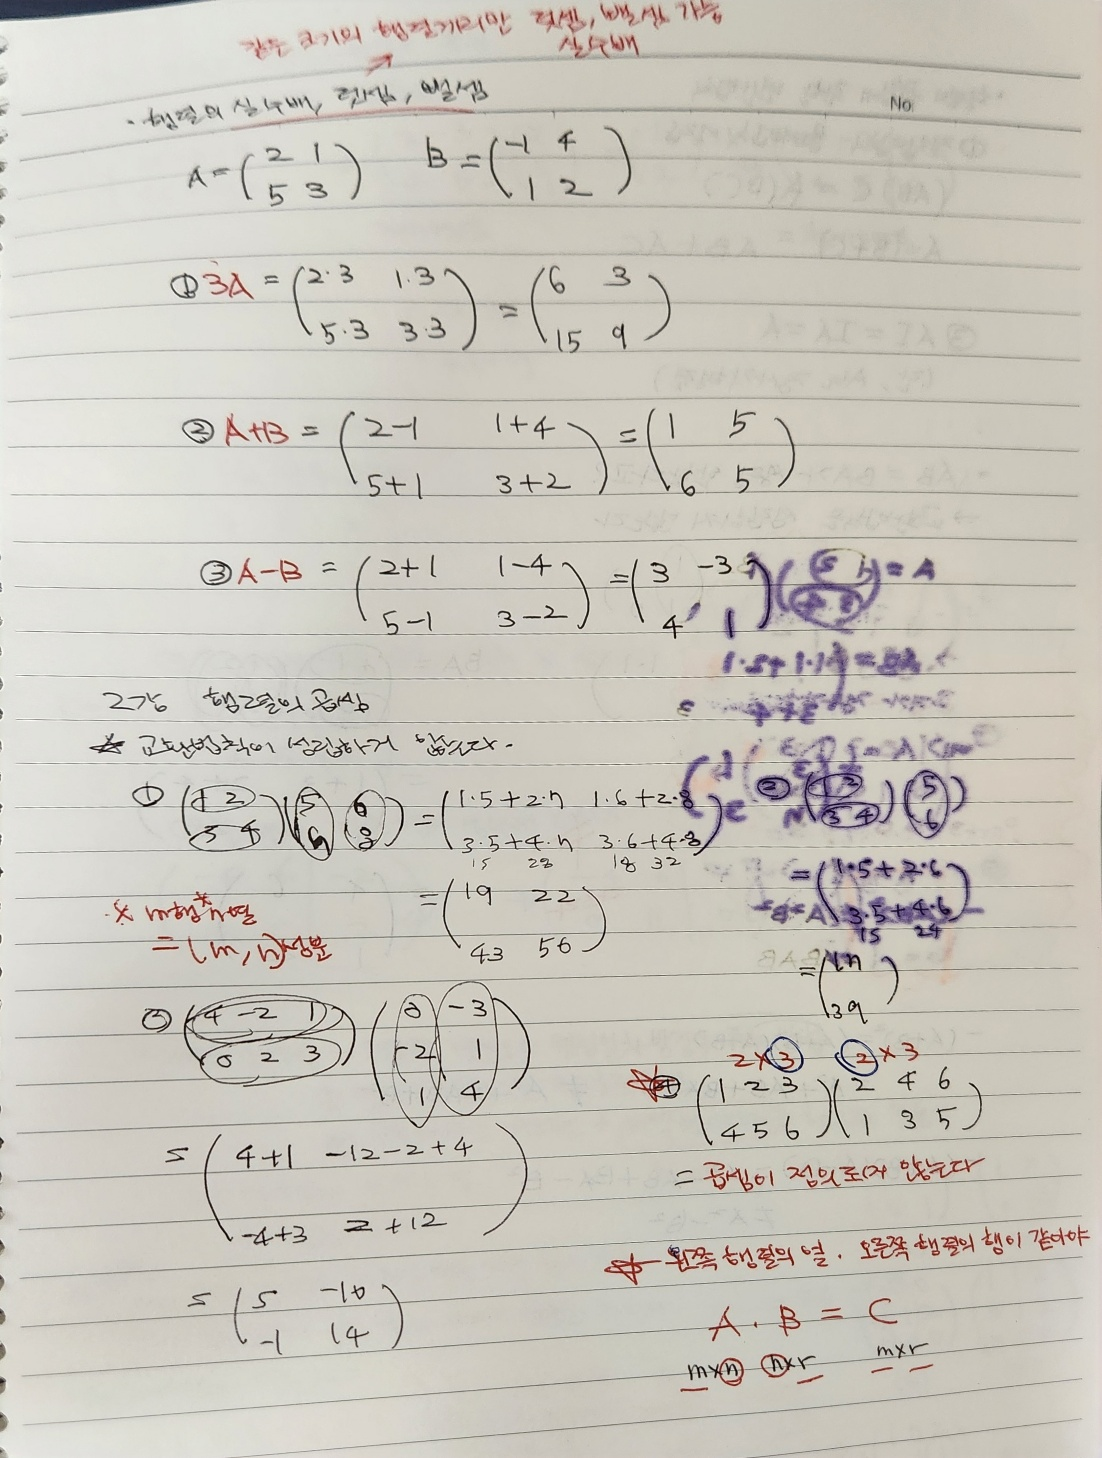 같은 크기의 행렬끼리만 덧셈, 뺄셈 가능
실수배
· 행렬의 실수배, 덧셈, 뺄셈
No
A = (2 1
5 3)
B = (-1 4
1 2)
① 3A = (2·3 1·3
5·3 3·3)
= (6 3
15 9)
② A+B = (2-1 1+4
5+1 3+2)
= (1 5
6 5)
③ A-B = (2+1 1-4
5-1 3-2)
= (3 -3
4 1)
2강 행렬의 곱셈
☆ 교환법칙이 성립하지 않는다.
① (1 2
3 4)
(5 6
7 8)
= (1·5+2·7 1·6+2·8
3·5+4·7 3·6+4·8)
15 28 18 32
= (19 22
43 50)
② (1 2
3 4)
(5
6)
= (1·5+2·6
3·5+4·6)
15 24
= (17
39)
= (m, n)성분
③ (4 -2 1
0 2 3)
(0 -3
-2 1
1 4)
= (4+1 -12-2+4
-4+3 2+12)
= (5 -10
-1 14)
2×3 2×3
☆④ (1 2 3
4 5 6)
(2 4 6
1 3 5)
= 곱셈이 정의되지 않는다
☆ 왼쪽 행렬의 열. 오른쪽 행렬의 행이 같아야
A · B = C
m×n n×r m×r